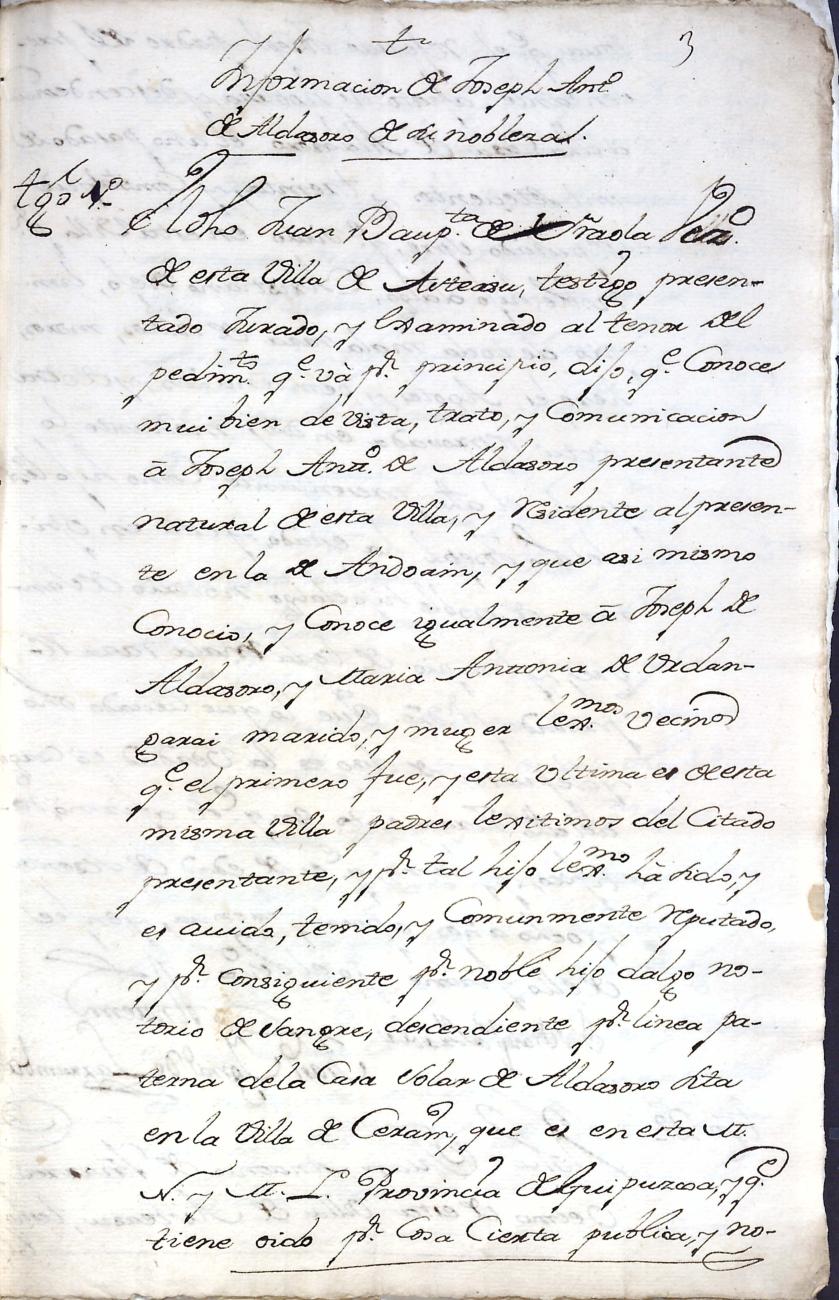 3
Informacion de Joseph Antt.º
de Aldasoro de su nobleza.
tgo 1.º
El dho Juan Baup.ta de Yraola Vez.º
de esta Villa de Asteasu, testigo presen-
tado Jurado, y Examinado al tenor del
pedim.to q.e và p.r principio, dijo, q.e Conoce
mui bien de vista, trato, y Comunicacion
à Joseph Antt.º de Aldasoro presentante
natural de esta Villa, y Residente al presen-
te en la de Andoain, y que asi mismo
Conocio, y Conoce igualmente à Joseph de
Aldasoro, y Maria Antonia de Urdan-
garai marido, y muger lex.mos Vecinos
q.e el primero fue, y esta ultima es de esta
misma Villa padres lexitimos del Citado
presentante, y p.r tal hijo lex.mo hà sido, y
es auido, tenido, y Comunmente Reputado,
y p.r Consiguiente p.r noble hijo dalgo no-
torio de sangre, descendiente p.r linea pa-
terna de la Casa Solar de Aldasoro sita
en la Villa de Cerain, que es en esta M.
N. y M. L. Provincia de Guipuzcoa, y q.e
tiene oido p.r Cosa Cierta publica, y no-